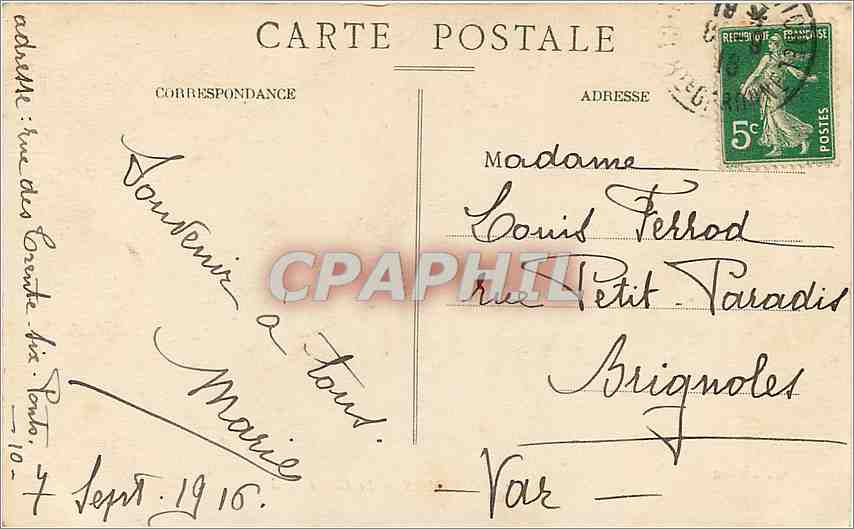 CARTE POSTALE
CORRESPONDANCE
ADRESSE
REPUBLIQUE FRANÇAISE
5c
POSTES
Souvenir
à tous.
Marie
7 Sept. 1916.
adresse : rue des Trente-six. Ponts.
-10-
Madame
Louis Ferrod
rue Petit-Paradis
Brignoles
-Var-
CPAPHIL